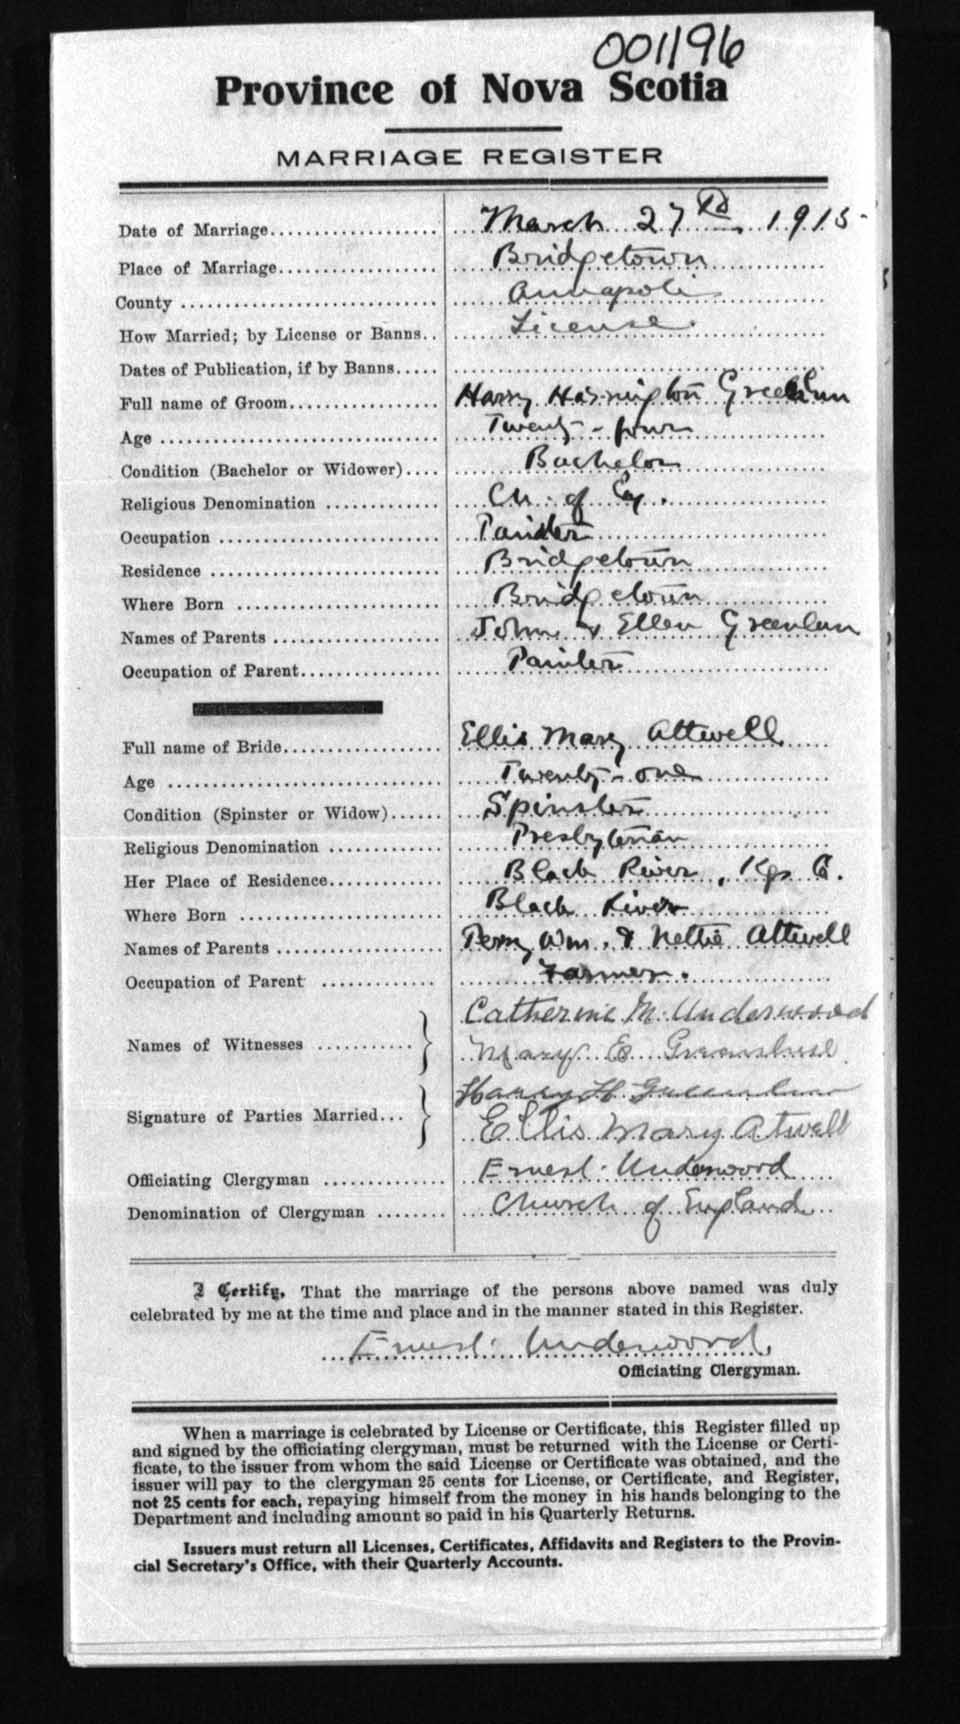 001196
Province of Nova Scotia
MARRIAGE REGISTER
Date of Marriage March 27th 1915
Place of Marriage Bridgetown
County Annapolis
How Married; by License or Banns License
Dates of Publication, if by Banns
Full name of Groom Harry Harrington
Age Twenty-four
Condition (Bachelor or Widower) Bachelor
Religious Denomination Ch. of Eng.
Occupation Painter
Residence Bridgetown
Where Born Bridgetown
Names of Parents John & Ellen Greenlun
Occupation of Parent Painter
Full name of Bride Ellis Mary Attwell
Age Twenty-one
Condition (Spinster or Widow) Spinster
Religious Denomination Presbyterian
Her Place of Residence Black River, Kgs C.
Where Born Black River
Names of Parents Perry Wm. & Nettie Attwell
Occupation of Parent Farmer.
Catherine M. Underwood
Names of Witnesses
Mary E.
Harry H.
Signature of Parties Married
Ellis Mary Atwell
Officiating Clergyman Ernest Underwood
Denomination of Clergyman Church of England
I Certify, That the marriage of the persons above named was duly
celebrated by me at the time and place and in the manner stated in this Register.
Ernest Underwood
Officiating Clergyman.
When a marriage is celebrated by License or Certificate, this Register filled up
and signed by the officiating clergyman, must be returned with the License or Certi-
ficate, to the issuer from whom the said License or Certificate was obtained, and the
issuer will pay to the clergyman 25 cents for License, or Certificate, and Register,
not 25 cents for each, repaying himself from the money in his hands belonging to the
Department and including amount so paid in his Quarterly Returns.
Issuers must return all Licenses, Certificates, Affidavits and Registers to the Provin-
cial Secretary's Office, with their Quarterly Accounts.